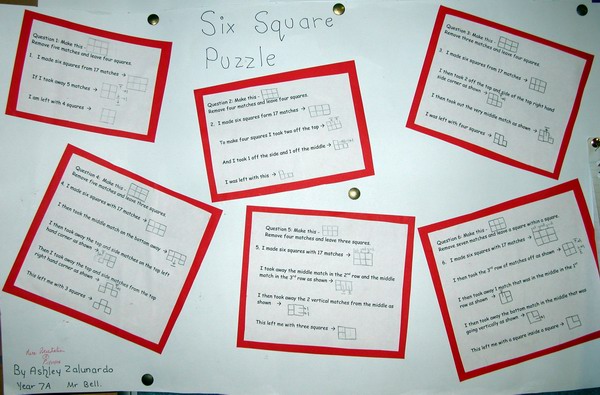 Six Square
Puzzle
Question 1: Make this -
Remove five matches and leave four squares.
1. I made six squares from 17 matches →
If I took away 5 matches →
I am left with 4 squares →
Question 2: Make this -
Remove four matches and leave four squares.
2. I made six squares form 17 matches →
To make four squares I took two off the top →
And I took 1 off the side and 1 off the middle →
I was left with this →
Question 3: Make this -
Remove three matches and leave four squares.
3. I made six squares from 17 matches →
I then took 2 off the top and side of the top right hand
side corner as shown →
I then took out the very middle match as shown →
I was left with four squares →
Question 4: Make this -
Remove five matches and leave three squares.
4. I made six squares with 17 matches →
I then took the middle match on the bottom away →
I then took away the top and side matches on the top left
hand corner as shown →
Then I took away the top and side matches from the top
right hand corner as shown →
This left me with 3 squares →
Question 5: Make this -
Remove four matches and leave three squares.
5. I made six squares with 17 matches →
I took away the middle match in the 2nd row and the middle
match in the 3rd row as shown →
I then took away the 2 vertical matches from the middle as
shown →
This left me with three squares →
Question 6: Make this -
Remove seven matches and leave a square within a square.
6. I made six squares with 17 matches →
I then took the 3rd row of matches off as shown →
I then took away 1 match that was in the middle in the 1st
row as shown →
I then took away the bottom match in the middle that was
going vertically as shown →
This left me with a square inside a square →
By Ashley Zalunardo
Year 7A Mr Bell.